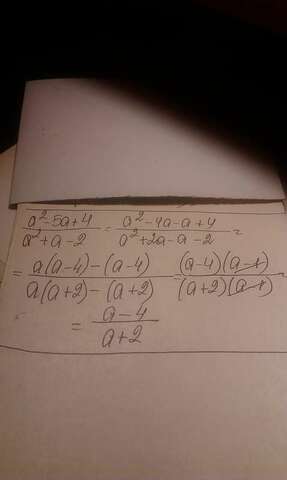 (a²-5a+4)/(a²+a-2) = (a²-4a-a+4)/(a²+2a-a-2) =
= (a(a-4)-(a-4))/(a(a+2)-(a+2)) = ((a-4)(a-1))/((a+2)(a-1))
= (a-4)/(a+2)